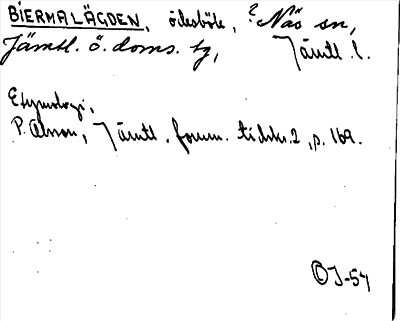 BIERMALÄGDEN, ödesböle, ? Näs sn,
Jämtl. ö. doms. tg, Jämtl. l.
Etymologi,
P. Olsson, Jämtl. fornm. tidskr. 2, p. 169.
OJ-54